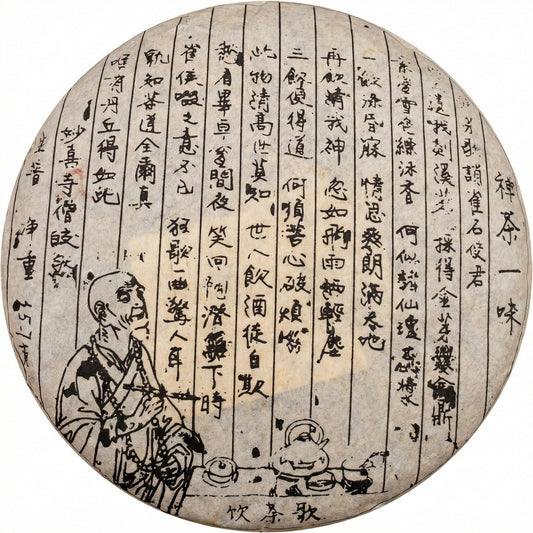 禅茶一味
茶歌誚崔石使君
遗我剡溪茗 採得金芽爨金鼎
素瓷雪色縹沫香 何似諸仙瓊蕊漿
一飲滌昏寐 情思爽朗满天地
再飲清我神 忽如飛雨洒輕塵
三飲便得道 何須苦心破煩惱
此物清高世莫知 世人飲酒徒自欺
愁看畢卓瓮間夜 笑向陶潛籬下時
崔侯啜之意不已 狂歌一曲驚人耳
孰知茶道全爾真
唯有丹丘得如此
妙真寺僧皎然
生普 净重
饮茶歌